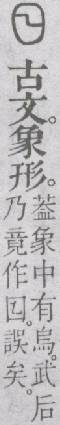 𡆠
古文。象形。
葢象中有烏。武后
乃竟作𡆠。誤矣。